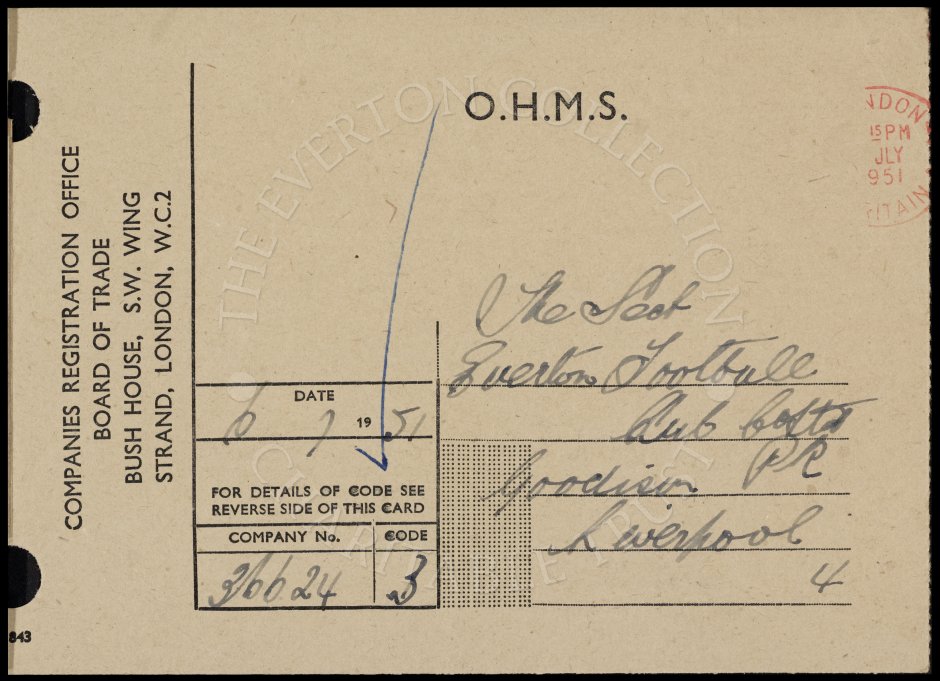 COMPANIES REGISTRATION OFFICE
BOARD OF TRADE
BUSH HOUSE, S.W. WING
STRAND, LONDON, W.C.2
O.H.M.S.
NDON
15 PM
JLY
951
ITAIN
THE EVERTON COLLECTION
CHARITABLE TRUST
The Sect
Everton Football
Club Co Ltd
Goodison PK
Liverpool
4
DATE
6 7 19 51
FOR DETAILS OF CODE SEE
REVERSE SIDE OF THIS CARD
COMPANY No. CODE
36624 3
843